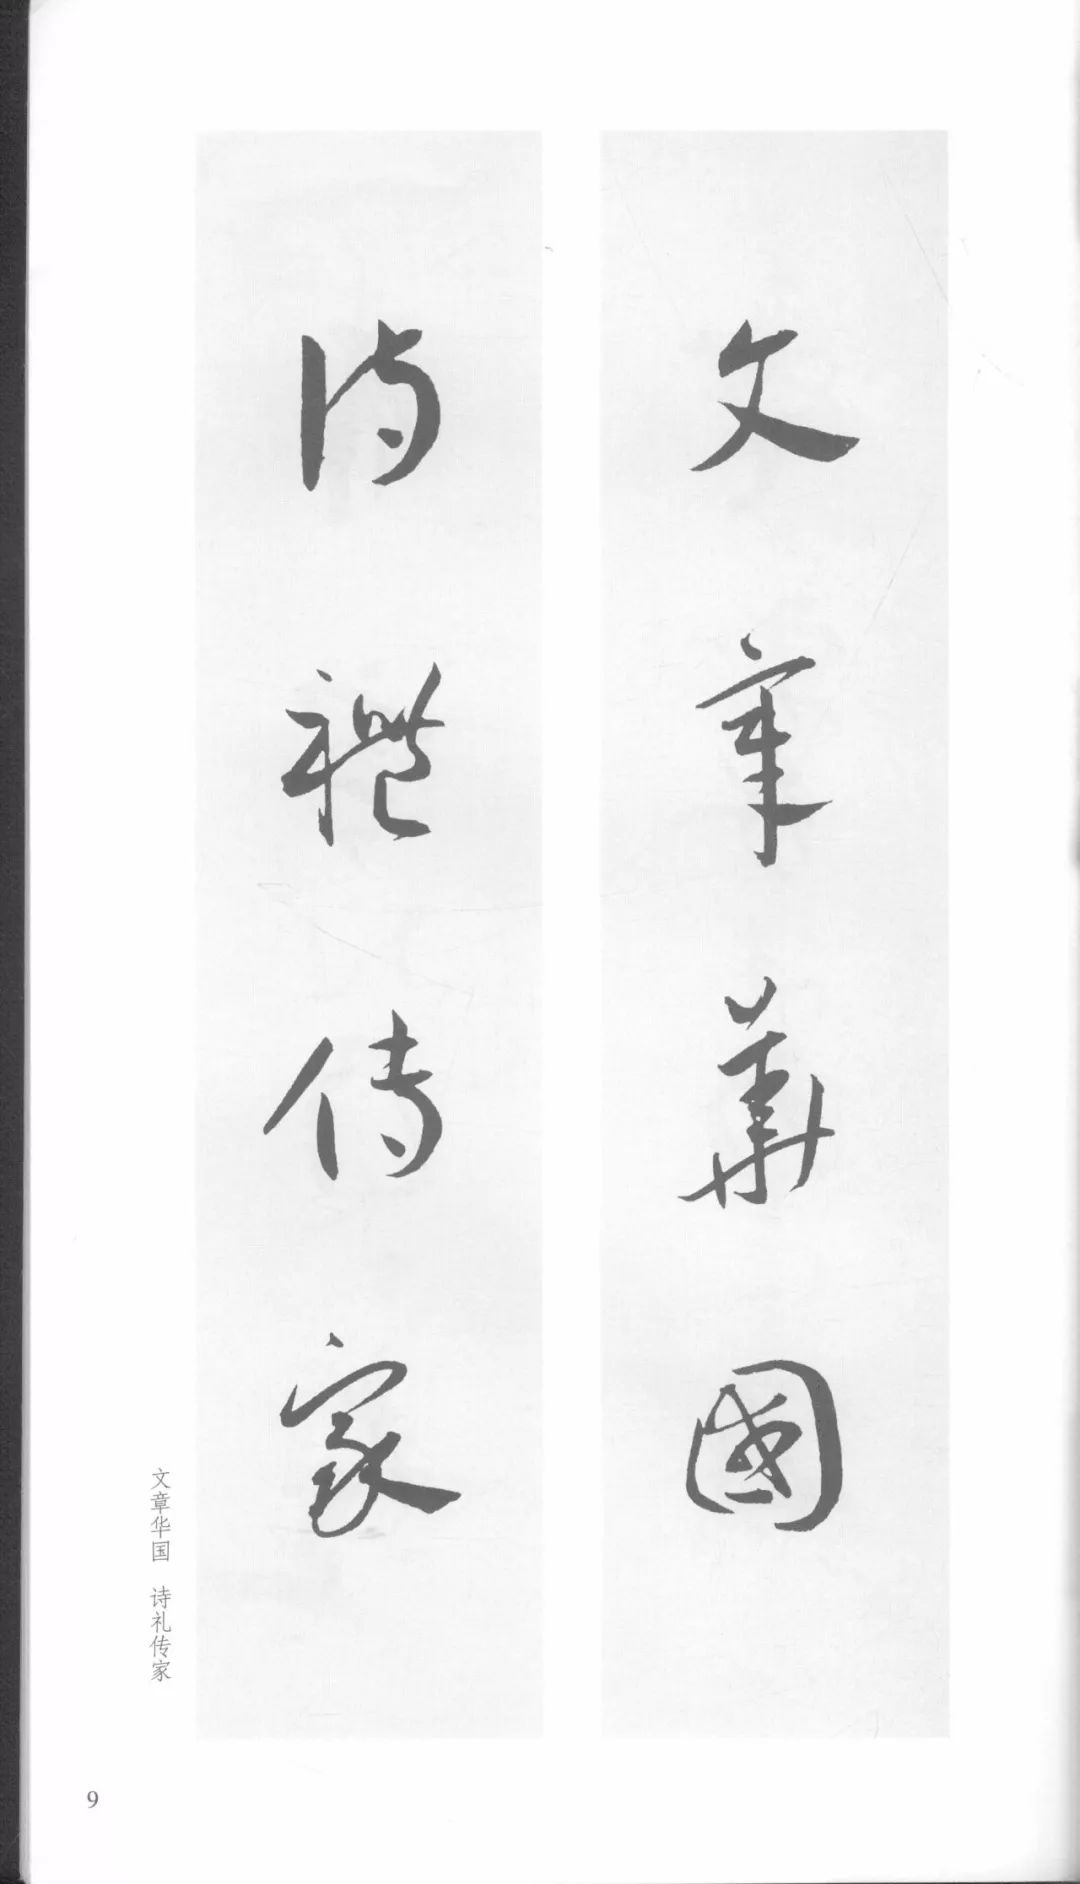 文章華國
詩禮傳家
文章华国 诗礼传家
9